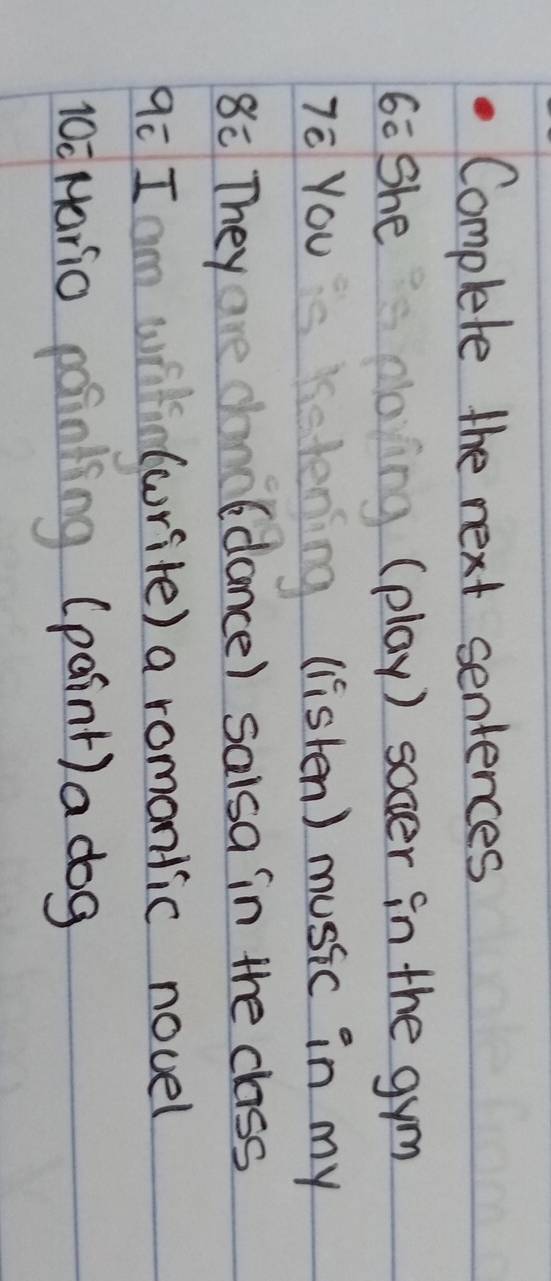 • Complete the next sentences
6:- She is playing (play) soccer in the gym
7:- You is listening (listen) music in my
8:- They are dancing (dance) salsa in the class
9:- I am writing (write) a romantic novel
10:- Mario painting (paint) a dog